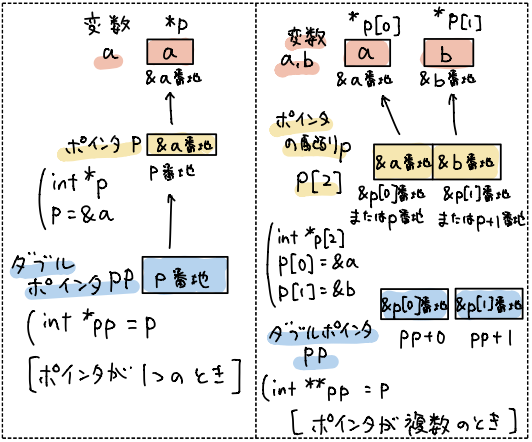 変数 *p
a a
&a番地
ポインタ p &a番地
p番地
int *p
p = &a
ダブル
ポインタ pp p番地
(int *pp = p
[ポインタが 1つのとき]
*p[0] *p[1]
変数
a,b a b
&a番地 &b番地
ポインタ
の配列 p &a番地 &b番地
p[2] &p[0]番地 &p[1]番地
またはp番地 またはp+1番地
int *p[2]
p[0] = &a
p[1] = &b
&p[0]番地 &p[1]番地
ダブルポインタ pp+0 pp+1
pp
(int **pp = p
[ポインタが複数のとき]